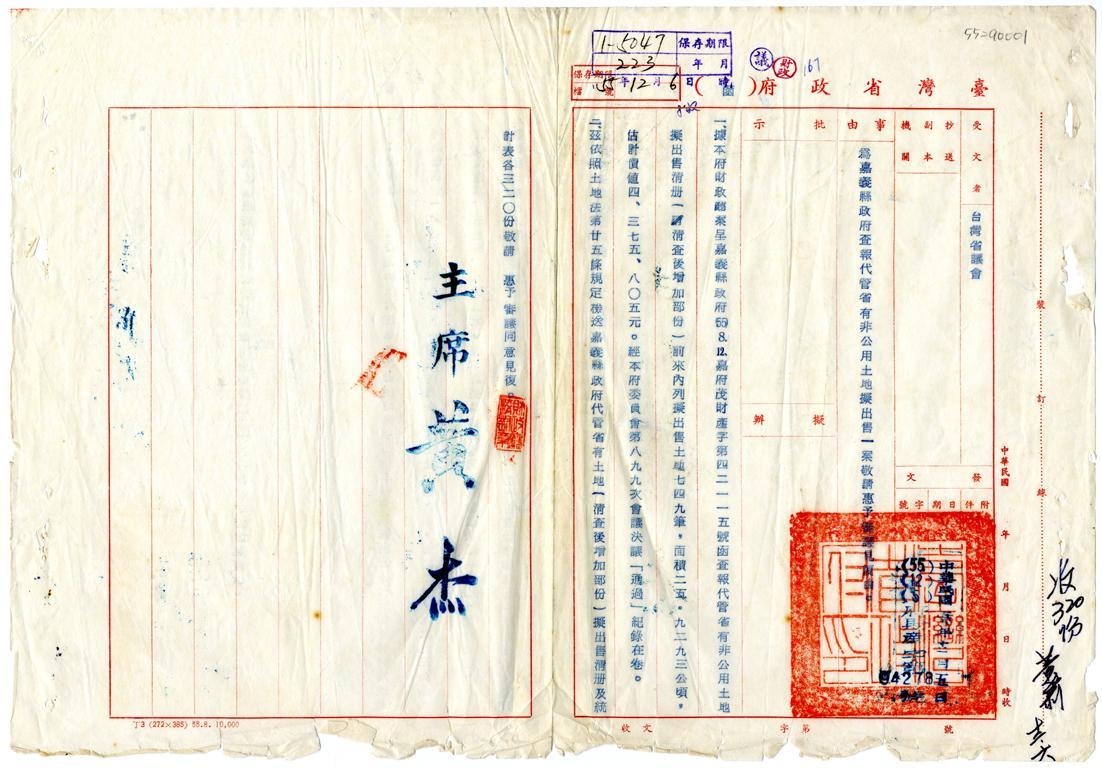 5520001
臺灣省政府（　）
議
財政
67
保存期限
1-5047
年　月
223
保存期限
檔號
55年12月6日　時
受文者
台灣省議會
抄送
副本
機關
發文
附件
日期
字號
事由
為嘉義縣政府查報代管省有非公用土地擬出售一案敬請惠予審議見復。
批示
擬辦
中華民國　年　月　日　時收
裝　訂　線
中華民國
(55)
(12)
(5)
月五日
94278
收320份
一、據本府財政廳案呈嘉義縣政府55 8. 12.嘉府茂財產字第四二一一五號函查報代管省有非公用土地
擬出售清册（清查後增加部份）前來內列擬出售土地七四九筆，面積二五．九二九三公頃，
估計價值四、三七五、八〇五元。經本府委員會第八九九次會議決議「通過」紀錄在卷。
二、茲依照土地法第廿五條規定檢送嘉義縣政府代管省有土地（清查後增加部份）擬出售清册及統
計表各三二〇份敬請　惠予審議同意見復。
主席黃杰
收文　字第　號
丁3 (272×385) 55.8. 10,000